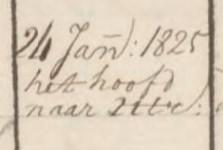 24 Jan: 1825
het hoofd
naar